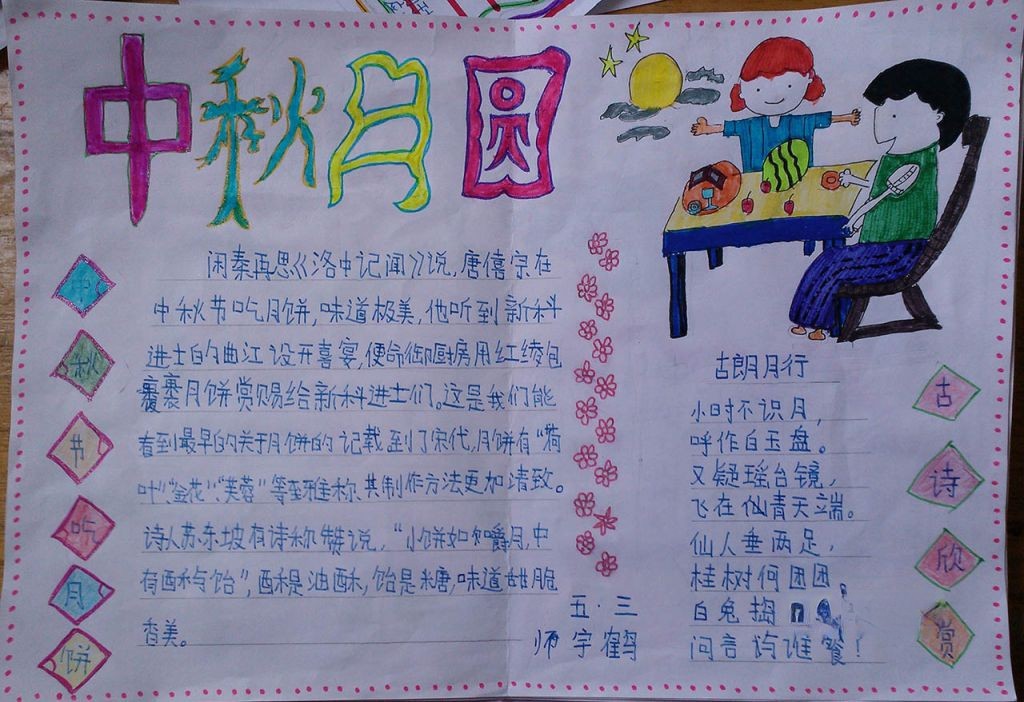 中秋月圆
中秋节吃月饼
闲秦再思《洛中记闻》说,唐僖宗在
中秋节吃月饼,味道极美,他听到新科
进士的曲江设开喜宴,便命御厨房用红绫包
裹月饼赏赐给新科进士们。这是我们能
看到最早的关于月饼的记载到了宋代,月饼有“荷
叶”“金花”、“芙蓉”等雅称,其制作方法更加清致。
诗人苏东坡有诗称赞说,“小饼如嚼月,中
有酥与饴”,酥是油酥,饴是糖,味道甜脆
香美。
五.三
师宇鹤
古朗月行
小时不识月,
呼作白玉盘。
又疑瑶台镜,
飞在仙青天端。
仙人垂两足,
桂树何团团。
白兔捣
问言与谁餐!
古诗欣赏